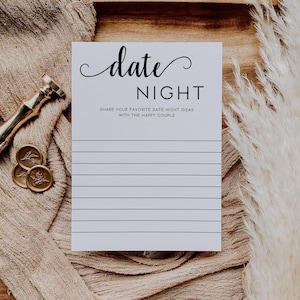 date
NIGHT
SHARE YOUR FAVORITE DATE NIGHT IDEAS
WITH THE HAPPY COUPLE